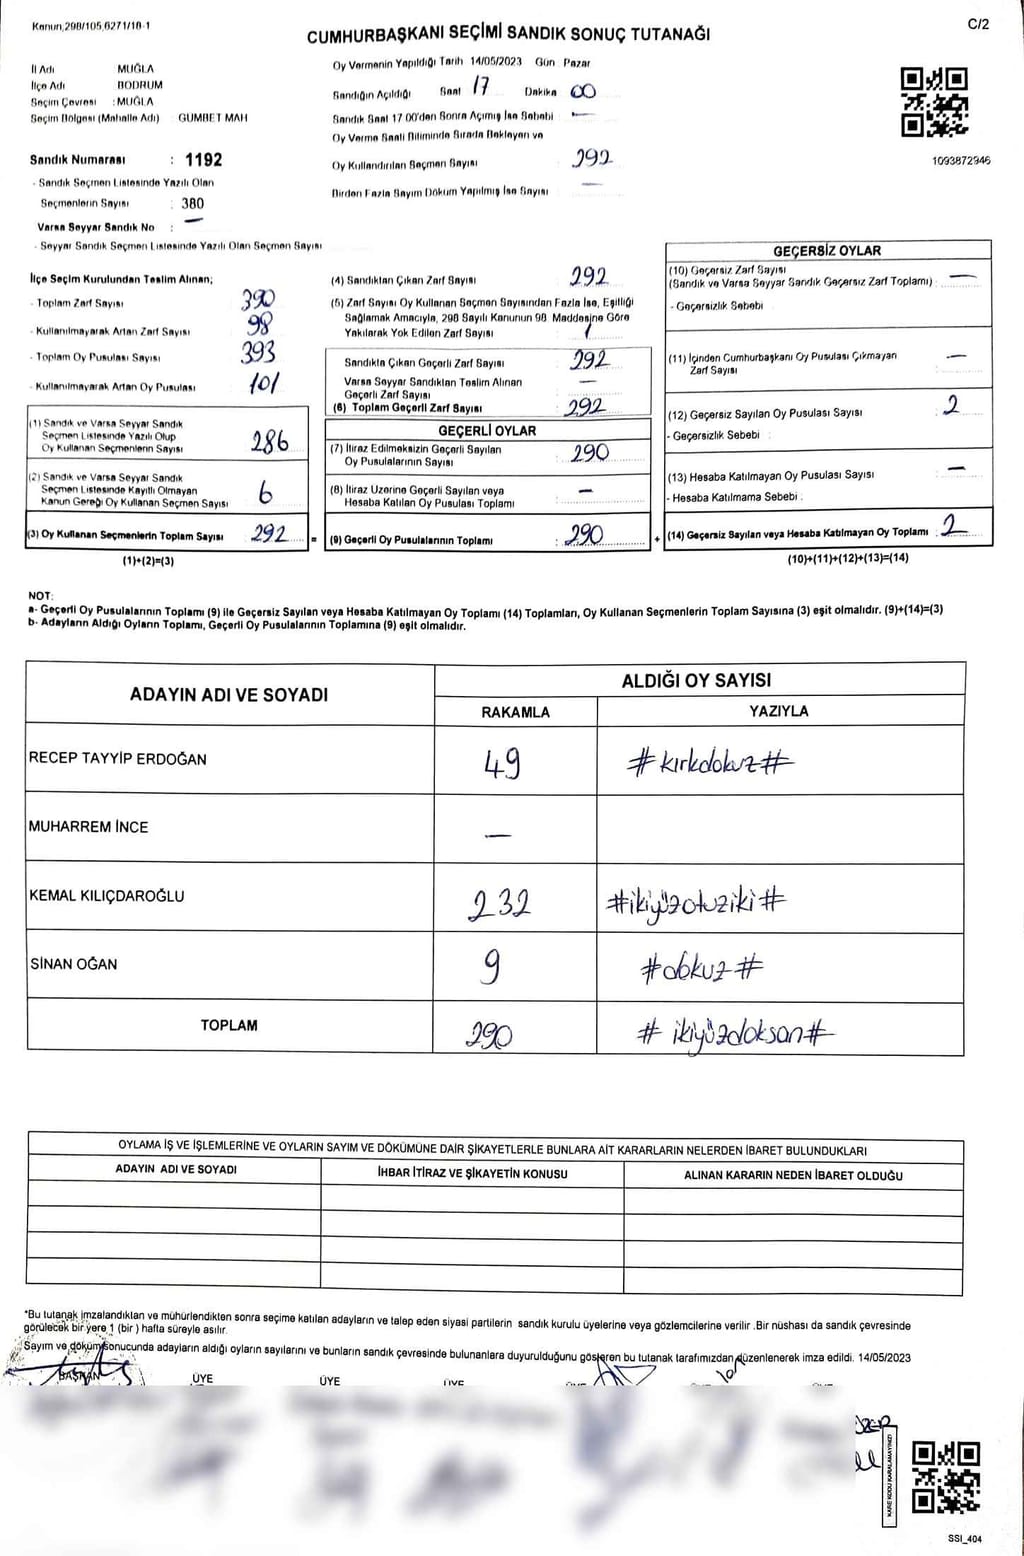 Kanun,298/105,6271/18-1
C/2
CUMHURBAŞKANI SEÇİMİ SANDIK SONUÇ TUTANAĞI
İl Adı MUĞLA
İlçe Adı BODRUM
Seçim Çevresi :MUĞLA
Seçim Bölgesi (Mahalle Adı) : GUMBET MAH
Sandık Numarası : 1192
- Sandık Seçmen Listesinde Yazılı Olan
Seçmenlerin Sayısı : 380
Varsa Seyyar Sandık No : —
- Seyyar Sandık Seçmen Listesinde Yazılı Olan Seçmen Sayısı
Oy Vermenin Yapıldığı Tarih 14/05/2023 Gün Pazar
Sandığın Açıldığı Saat 17 Dakika 00
Sandık Saat 17 00'den Sonra Açımış İse Sebebi —
Oy Verme Saati Bitiminde Sırada Bekleyen ve
Oy Kullandırılan Seçmen Sayısı 292
Birden Fazla Sayım Döküm Yapılmış İse Sayısı —
1093872946
İlçe Seçim Kurulundan Teslim Alınan;
- Toplam Zarf Sayısı 390
- Kullanılmayarak Artan Zarf Sayısı 98
- Toplam Oy Pusulası Sayısı 393
- Kullanılmayarak Artan Oy Pusulası 101
(1) Sandık ve Varsa Seyyar Sandık
Seçmen Listesinde Yazılı Olup
Oy Kullanan Seçmenlerin Sayısı 286
(2) Sandık ve Varsa Seyyar Sandık
Seçmen Listesinde Kayıtlı Olmayan
Kanun Gereği Oy Kullanan Seçmen Sayısı 6
(3) Oy Kullanan Seçmenlerin Toplam Sayısı 292 =
(1)+(2)=(3)
(4) Sandıktan Çıkan Zarf Sayısı 292
(5) Zarf Sayısı Oy Kullanan Seçmen Sayısından Fazla İse, Eşitliği
Sağlamak Amacıyla, 298 Sayılı Kanunun 98 Maddesine Göre
Yakılarak Yok Edilen Zarf Sayısı /
Sandıkta Çıkan Geçerli Zarf Sayısı 292
Varsa Seyyar Sandıktan Teslim Alınan
Geçerli Zarf Sayısı —
(6) Toplam Geçerli Zarf Sayısı 292
GEÇERLİ OYLAR
(7) İtiraz Edilmeksizin Geçerli Sayılan
Oy Pusulalarının Sayısı : 290
(8) İtiraz Üzerine Geçerli Sayılan veya
Hesaba Katılan Oy Pusulası Toplamı : —
(9) Geçerli Oy Pusulalarının Toplamı : 290 +
GEÇERSİZ OYLAR
(10) Geçersiz Zarf Sayısı
(Sandık ve Varsa Seyyar Sandık Geçersiz Zarf Toplamı) : —
- Geçersizlik Sebebi :
(11) İçinden Cumhurbaşkanı Oy Pusulası Çıkmayan
Zarf Sayısı : —
(12) Geçersiz Sayılan Oy Pusulası Sayısı : 2
- Geçersizlik Sebebi :
(13) Hesaba Katılmayan Oy Pusulası Sayısı : —
- Hesaba Katılmama Sebebi :
(14) Geçersiz Sayılan veya Hesaba Katılmayan Oy Toplamı : 2
(10)+(11)+(12)+(13)=(14)
NOT:
a- Geçerli Oy Pusulalarının Toplamı (9) ile Geçersiz Sayılan veya Hesaba Katılmayan Oy Toplamı (14) Toplamları, Oy Kullanan Seçmenlerin Toplam Sayısına (3) eşit olmalıdır. (9)+(14)=(3)
b- Adayların Aldığı Oyların Toplamı, Geçerli Oy Pusulalarının Toplamına (9) eşit olmalıdır.
ADAYIN ADI VE SOYADI
ALDIĞI OY SAYISI
RAKAMLA YAZIYLA
RECEP TAYYİP ERDOĞAN 49 #kırkdokuz#
MUHARREM İNCE —
KEMAL KILIÇDAROĞLU 232 #ikiyüzotuziki#
SİNAN OĞAN 9 #dokuz#
TOPLAM 290 # ikiyüzdoksan#
OYLAMA İŞ VE İŞLEMLERİNE VE OYLARIN SAYIM VE DÖKÜMÜNE DAİR ŞİKAYETLERLE BUNLARA AİT KARARLARIN NELERDEN İBARET BULUNDUKLARI
ADAYIN ADI VE SOYADI İHBAR İTİRAZ VE ŞİKAYETİN KONUSU ALINAN KARARIN NEDEN İBARET OLDUĞU
*Bu tutanak imzalandıktan ve mühürlendikten sonra seçime katılan adayların ve talep eden siyasi partilerin sandık kurulu üyelerine veya gözlemcilerine verilir .Bir nüshası da sandık çevresinde
görülecek bir yere 1 (bir ) hafta süreyle asılır.
Sayım ve dökümsonucunda adayların aldığı oyların sayılarını ve bunların sandık çevresinde bulunanlara duyurulduğunu gösteren bu tutanak tarafımızdan düzenlenerek imza edildi. 14/05/2023
BAŞKAN ÜYE ÜYE ÜYE
KARE KODU KARALAMAYINIZ!
SSI_404